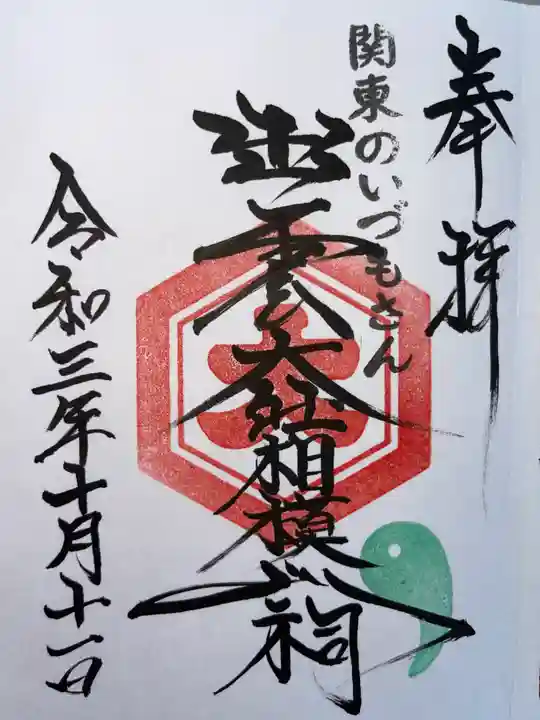 奉拝
関東のいづもさん
出雲大社相模分祠
令和三年十月十一日
大